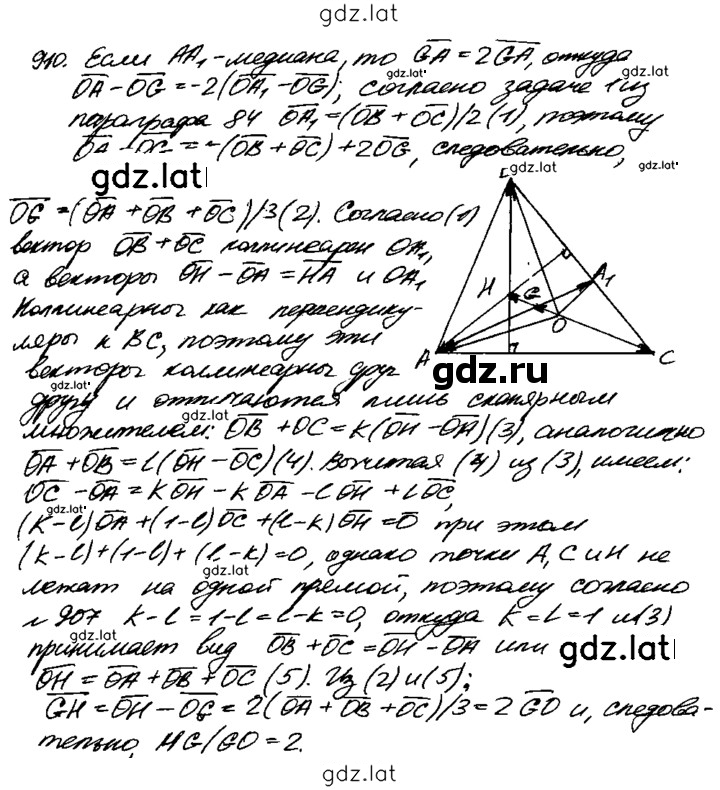 gdz.lat
910. Если AA₁-медиана, то G̅A̅ = 2G̅A̅, откуда
gdz.lat
gdz.lat
O̅A̅ - O̅G̅ = -2(O̅A̅₁ - O̅G̅); согласно задаче 1 из
параграфа 84 O̅A̅₁ = (O̅B̅ + O̅C̅)/2 (1), поэтому
gdz.lat
O̅A̅ - O̅G̅ = -(O̅B̅ + O̅C̅) + 2O̅G̅, следовательно,
gdz.lat
gdz.lat
O̅G̅ = (O̅A̅ + O̅B̅ + O̅C̅)/3 (2). Согласно (1)
вектор O̅B̅ + O̅C̅ коллинеарен OA₁,
а векторы O̅H̅ - O̅A̅ = H̅A̅ и OA₁
H G A₁
Коллинеарны как перпендику-
O
ляры к BC, поэтому эти
A C
векторы коллинеарны друг
gdz.ru
gdz.lat
другу и отличаются лишь скалярным
gdz.lat
множителем: O̅B̅ + O̅C̅ = K(O̅H̅ - O̅A̅) (3), аналогично
O̅A̅ + O̅B̅ = l(O̅H̅ - O̅C̅) (4). Вычитая (4) из (3), имеем:
O̅C̅ - O̅A̅ = KO̅H̅ - KO̅A̅ - lO̅H̅ + lO̅C̅,
gdz.lat
(K-l)O̅A̅ + (1-l)O̅C̅ + (l-K)O̅H̅ = 0̅ при этом
(K-l)+(1-l)+(l-K)=0, однако точки A, C и H не
gdz.lat
лежат на одной прямой, поэтому согласно
№ 907 K-l=1-l=l-K=0, откуда K=L=1 и (3)
gdz.lat
принимает вид O̅B̅ + O̅C̅ = O̅H̅ - O̅A̅ или
gdz.lat
O̅H̅ = O̅A̅ + O̅B̅ + O̅C̅ (5). Из (2) и (5);
G̅H̅ = O̅H̅ - O̅G̅ = 2(O̅A̅ + O̅B̅ + O̅C̅)/3 = 2G̅O̅ и, следова-
тельно, HG/GO = 2.
gdz.lat